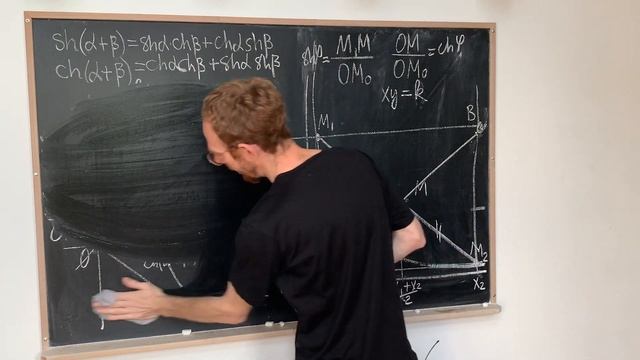 sh(α+β)=shα chβ+chα shβ
ch(α+β)=chα chβ+shα shβ
shφ = M₁M / OM₀
OM / OM₀ = chφ
xy = k
M₁
B
M
M₂
x₂